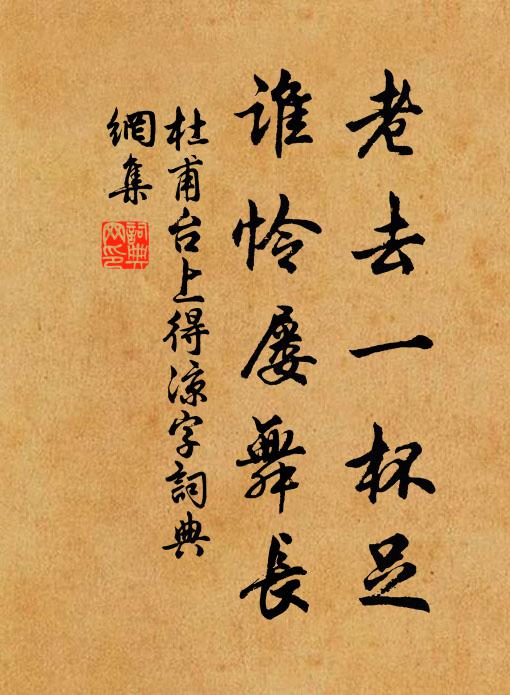 老去一杯足
誰怜屡舞長
杜甫台上得凉字詞典
網集
詞典
网印